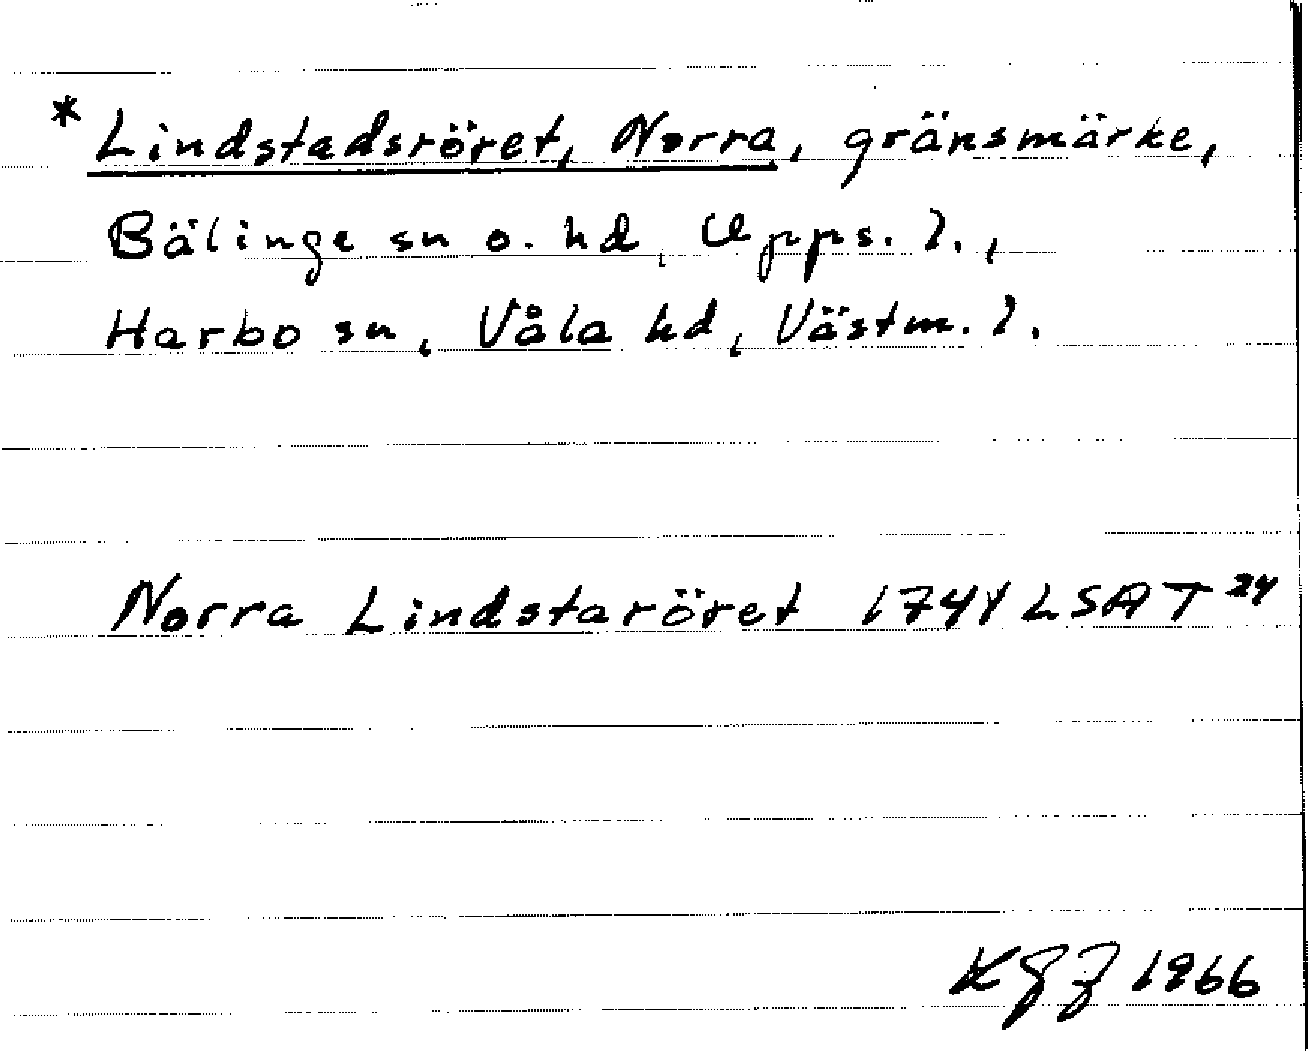 * Lindstadsröret, Norra, gränsmärke,
Bälinge sn o. hd, Upps. l.,
Harbo sn, Våla hd, Västm. l.
Norra Lindstaröret 1744 LSA T 24
1966